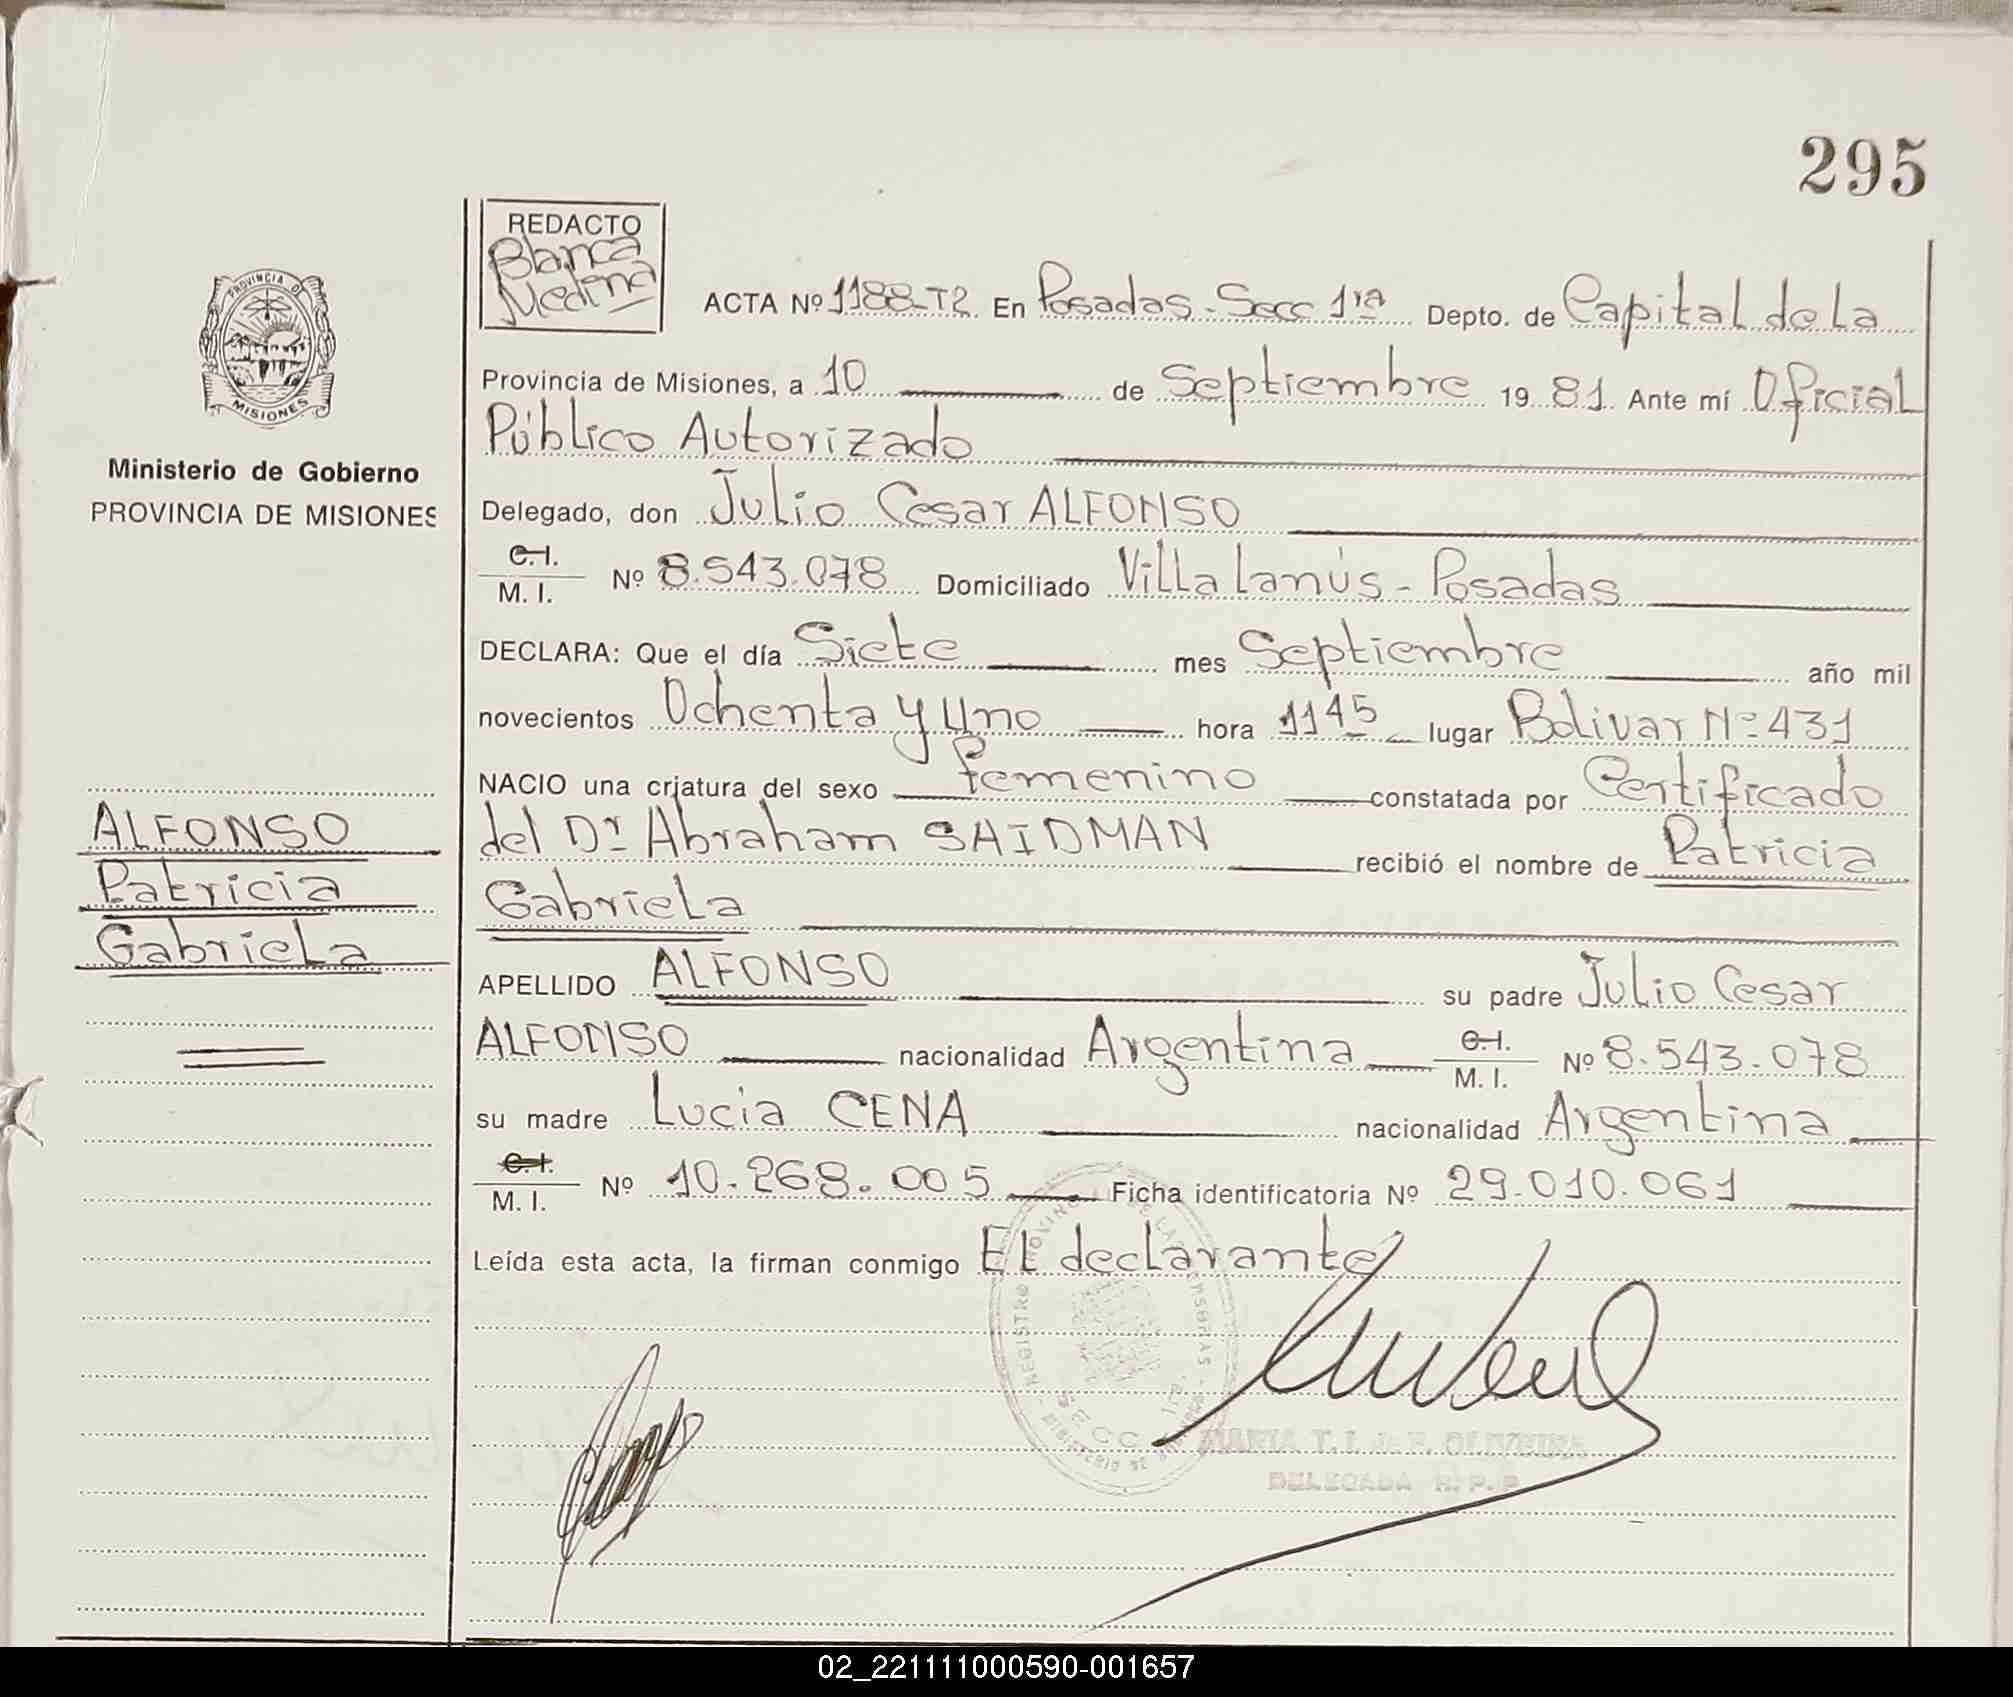 295
REDACTO
Blanca
Medina
ACTA Nº 1188-T2. En Posadas-Secc 1ra Depto. de Capital de la
PROVINCIA DE
MISIONES
Provincia de Misiones, a 10 de Septiembre 19 81 Ante mí Oficial
Público Autorizado
Ministerio de Gobierno
PROVINCIA DE MISIONES
Delegado, don Julio Cesar ALFONSO
C.I.
M. I. Nº 8.543.078 Domiciliado Villa Lanús - Posadas
DECLARA: Que el día Siete mes Septiembre año mil
novecientos Ochenta y Uno hora 1145 lugar Bolivar Nº 431
NACIO una criatura del sexo femenino constatada por Certificado
del Dr Abraham SAIDMAN recibió el nombre de Patricia
Gabriela
ALFONSO
Patricia
Gabriela
APELLIDO ALFONSO su padre Julio Cesar
ALFONSO nacionalidad Argentina C.I.
M. I. Nº 8.543.078
su madre Lucia CENA nacionalidad Argentina
C.I.
M. I. Nº 10.268.005 Ficha identificatoria Nº 29.010.061
Leída esta acta, la firman conmigo El declarante
REGISTRO PROVINC DE LAS
SECC 1a.
MARIA T. I. de F. OLIVEIRA
DELEGADA R. P. P
02_221111000590-001657